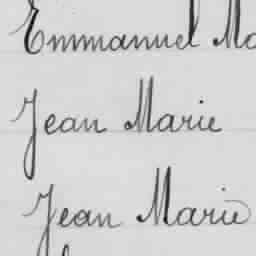 Emmanuel Ma
Jean Marie
Jean Marie